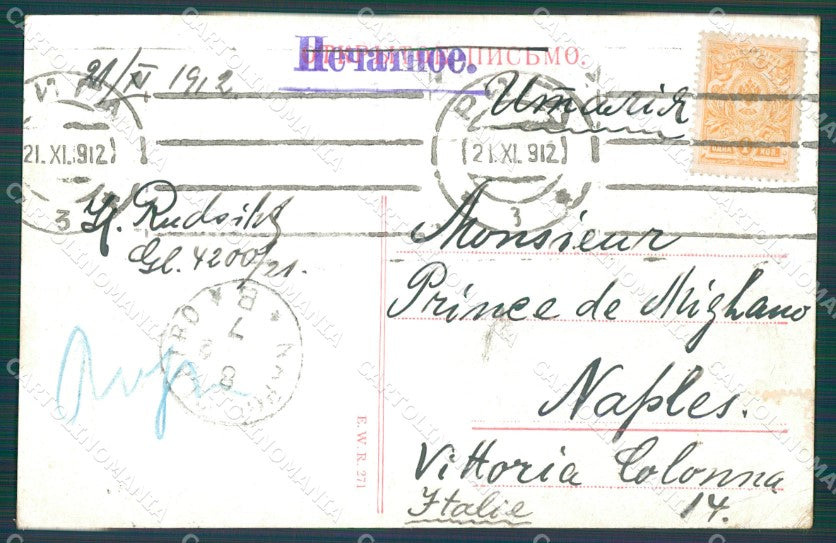 ОТКРЫТОЕ ПИСЬМО.
Печатное.
21/XI 1912
Италія
РИГА
21.XI.912
3
РИГА
21.XI.912
3
Gl. 4200/21.
Monsieur
Prince de Migliano
Naples.
Vittoria Colonna
14.
Italie
E.W.R. 271
CARTOLINOMANIA